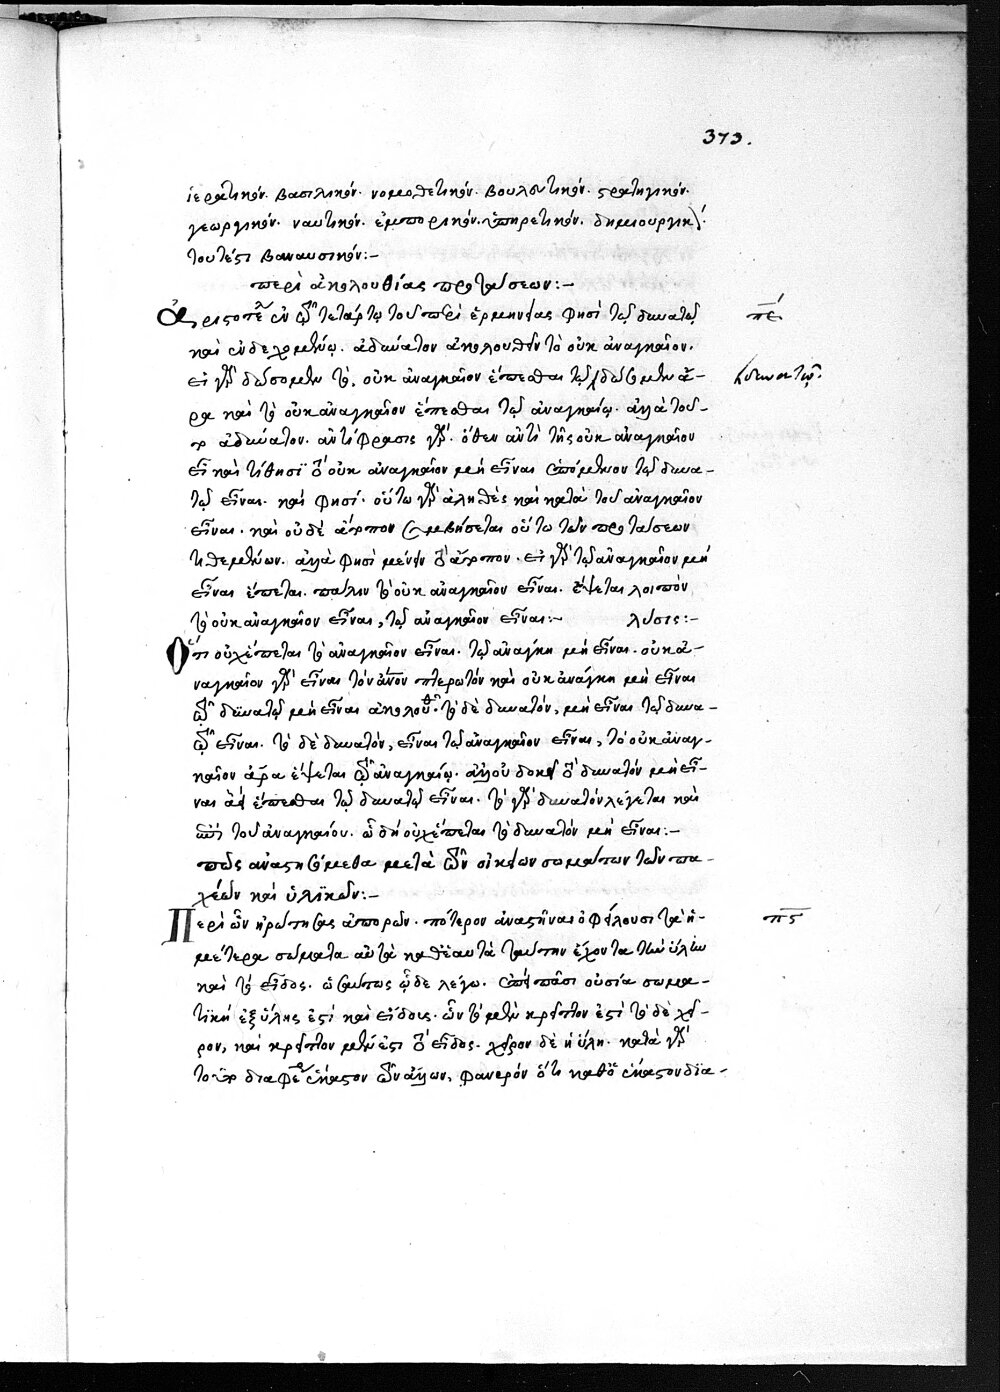 373.
ἱερατικόν. βασιλικόν. νομοθετικόν. βουλευτικόν. στρατηγικόν.
γεωργικόν. ναυτικόν. ἐμπορικόν. ὑπηρετικόν. δημιουργικόν.
τουτέστι βαναυσικόν:–
περὶ ἀκολουθίας προτάσεων:–
Ἀριστοτέλης ἐν τῷ τετάρτῳ τοῦ περὶ ἑρμηνείας φησὶ τῷ δυνατῷ
πε
καὶ ἐνδεχομένῳ. ἀδύνατον ἀκολουθεῖν τὸ οὐκ ἀναγκαῖον.
εἰ γὰρ δώσομεν τὸ οὐκ ἀναγκαῖον ἕπεσθαι τῷ δώσομεν ἄ–
ρα καὶ τὸ οὐκ ἀναγκαῖον ἕπεσθαι τῷ ἀναγκαίῳ. ἀλλὰ τοῦ–
το ἀδύνατον. ἀντίφρασις γάρ. ὅθεν ἀντὶ τῆς οὐκ ἀναγκαῖον
εἶναι τίθησι τὸ οὐκ ἀναγκαῖον μὴ εἶναι ἑπόμενον τῷ δυνα–
τῷ εἶναι. καὶ φησί. οὕτω γὰρ ἀληθὲς καὶ κατὰ τοῦ ἀναγκαῖον
εἶναι. καὶ οὐδὲ ἄτοπον συμβήσεται οὕτω τῶν προτάσεων
τιθεμένων. ἀλλὰ φησὶ μένειν τὸ ἄτοπον. εἰ γὰρ τῷ ἀναγκαῖον μὴ
εἶναι ἕπεται. πάλιν τὸ οὐκ ἀναγκαῖον εἶναι. ἕψεται λοιπὸν
τὸ οὐκ ἀναγκαῖον εἶναι, τῷ ἀναγκαῖον εἶναι:– λύσις:–
Ὅτι οὐχ ἕπεται τὸ ἀναγκαῖον εἶναι. τῷ ἀνάγκη μὴ εἶναι. οὐκ ἀ–
ναγκαῖον γὰρ εἶναι τὸν ἄνθρωπον πτερωτὸν καὶ οὐκ ἀνάγκη μὴ εἶναι
τῷ δυνατῷ μὴ εἶναι ἀκολουθεῖ. τὸ δὲ δυνατόν, μὴ εἶναι τῷ δυνα–
τῷ εἶναι. τὸ δὲ δυνατόν, εἶναι τῷ ἀναγκαῖον εἶναι, τὸ οὐκ ἀναγ–
καῖον ἄρα ἕψεται τῷ ἀναγκαίῳ. ἀλλ' οὐ δοκεῖ τὸ δυνατὸν μὴ εἶ–
ναι ἀεὶ ἕπεσθαι τῷ δυνατῷ εἶναι. τὸ γὰρ δυνατὸν λέγεται καὶ
ἐπὶ τοῦ ἀναγκαίου. ᾧ δὴ οὐχ ἕπεται τὸ δυνατὸν μὴ εἶναι:–
πῶς ἀναστησόμεθα μετὰ τῶν οἰκείων σωμάτων τῶν πα–
χέων καὶ ὑλικῶν:–
Περὶ ὧν ἠρώτησας ἀπορῶν. πότερον ἀναστῆναι ὀφείλουσι τὰ ἡ–
πϛ
μέτερα σώματα αὐτὰ καθ' ἑαυτὰ ταύτην ἔχοντα τὴν ὕλην
καὶ τὸ εἶδος. ὡσαύτως ὧδε λέγω. ἐπεὶ πᾶσι οὐσία σωμα–
τικὴ ἐξ ὕλης ἐστὶ καὶ εἴδους. ὧν τὸ μὲν κρεῖττον ἐστὶ τὸ δὲ χεῖ–
ρον, καὶ κρεῖττον μέν ἐστι τὸ εἶδος. χεῖρον δὲ ἡ ὕλη. κατὰ γὰρ
τοῦτο διαφέρει ἕκαστον τῶν ἄλλων, φανερὸν ὅτι καθὸ ἕκαστον δια–